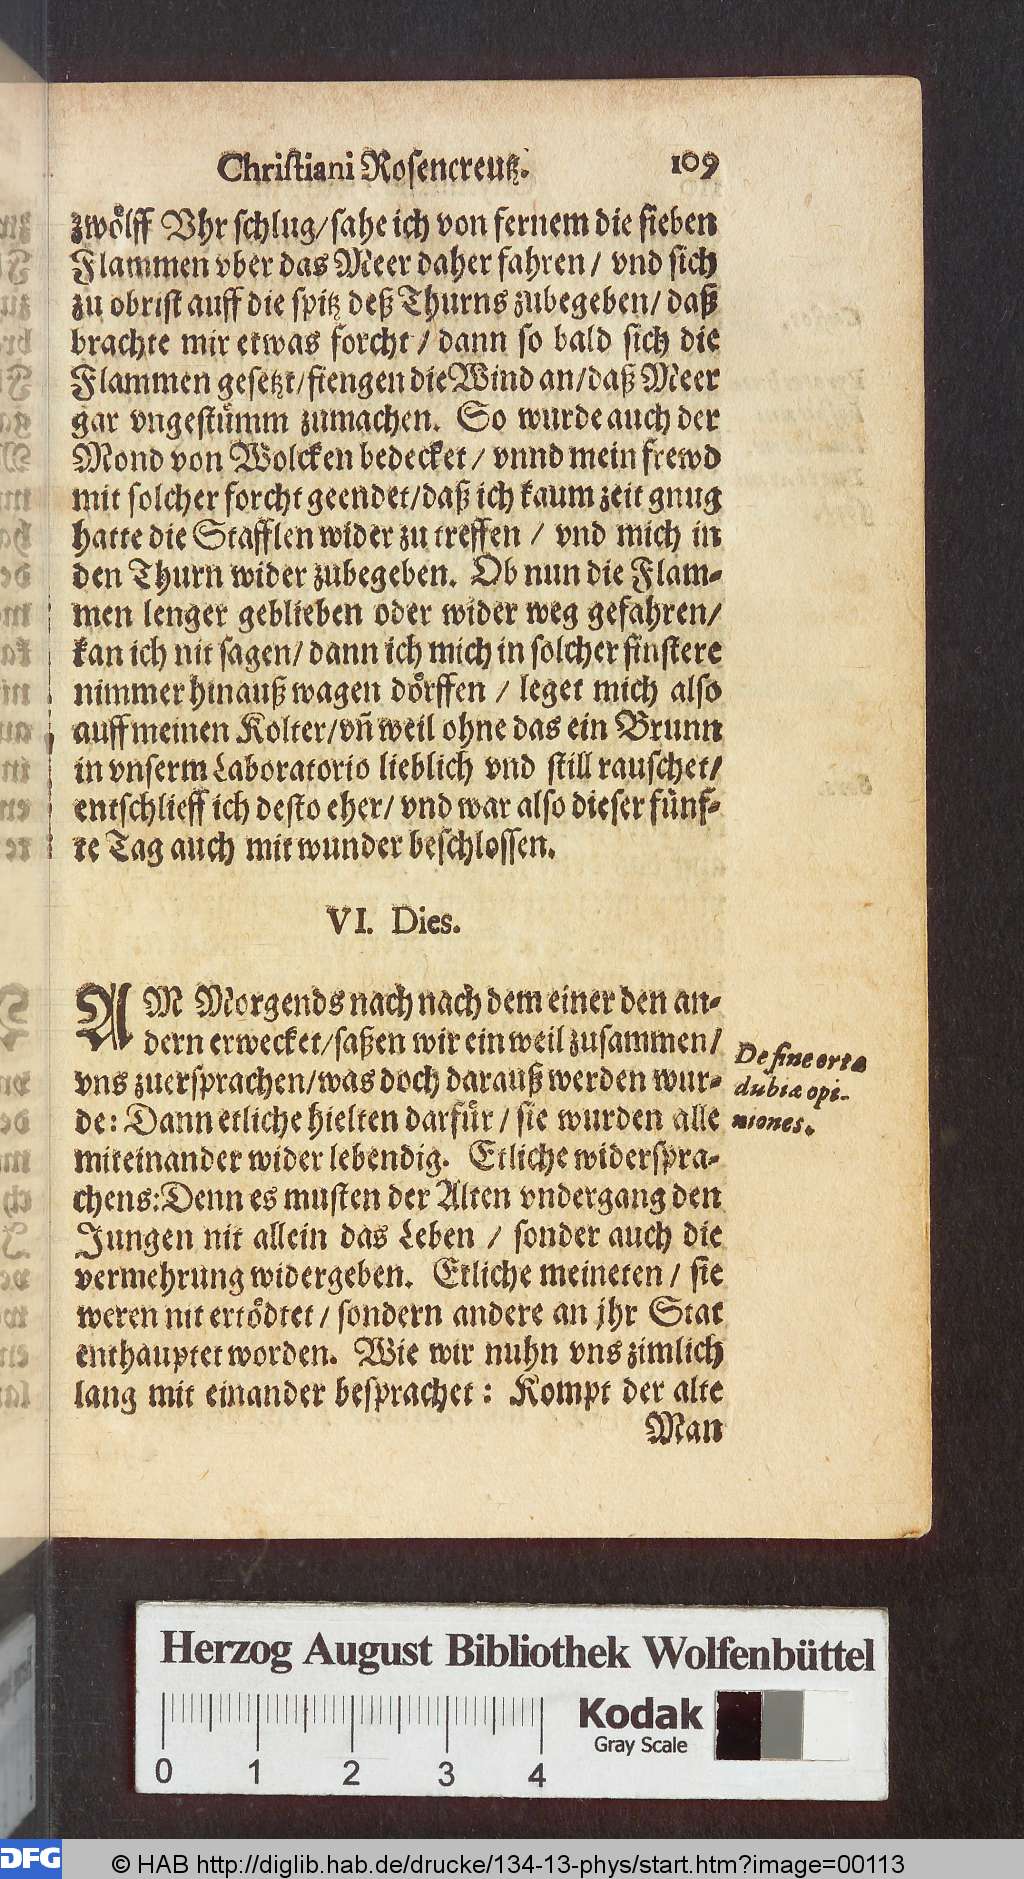 Chriſtiani Roſencreutz. 109
zwoͤlff Vhr ſchlug/ſahe ich von fernem die ſieben
Flammen vber das Meer daher fahren / vnd ſich
zu obriſt auff die ſpitz deß Thurns zubegeben/ daß
brachte mir etwas forcht / dann ſo bald ſich die
Flammen geſetzt/fiengen die Wind an/daß Meer
gar vngeſtuͤmm zumachen. So wurde auch der
Mond von Wolcken bedecket / vnnd mein frewd
mit ſolcher forcht geendet/daß ich kaum zeit gnug
hatte die Stafflen wider zu treffen / vnd mich in
den Thurn wider zubegeben. Ob nun die Flam-
men lenger geblieben oder wider weg gefahren/
kan ich nit ſagen/ dann ich mich in ſolcher finſtere
nimmer hinauß wagen doͤrffen / leget mich alſo
auff meinen Kolter/vñ weil ohne das ein Brunn
in vnſerm Laboratorio lieblich vnd ſtill rauſchet/
entſchlieff ich deſto eher/ vnd war alſo dieſer fuͤnf-
te Tag auch mit wunder beſchloſſen.
VI. Dies.
AM Morgends nach nach dem einer den an-
dern erwecket/ſaßen wir ein weil zuſammen/
vns zuerſprachen/was doch darauß werden wur-
de: Dann etliche hielten darfuͤr / ſie wurden alle
miteinander wider lebendig. Etliche widerſpra-
chens:Denn es muſten der Alten vndergang den
Jungen nit allein das Leben / ſonder auch die
vermehrung widergeben. Etliche meineten / ſie
weren nit ertoͤdtet / ſondern andere an jhr Stat
enthauptet worden. Wie wir nuhn vns zimlich
lang mit einander beſprachet : Kompt der alte
Man
De fine ortæ
dubiæ opi-
niones.
Herzog August Bibliothek Wolfenbüttel
Kodak
Gray Scale
0 1 2 3 4
DFG
© HAB http://diglib.hab.de/drucke/134-13-phys/start.htm?image=00113